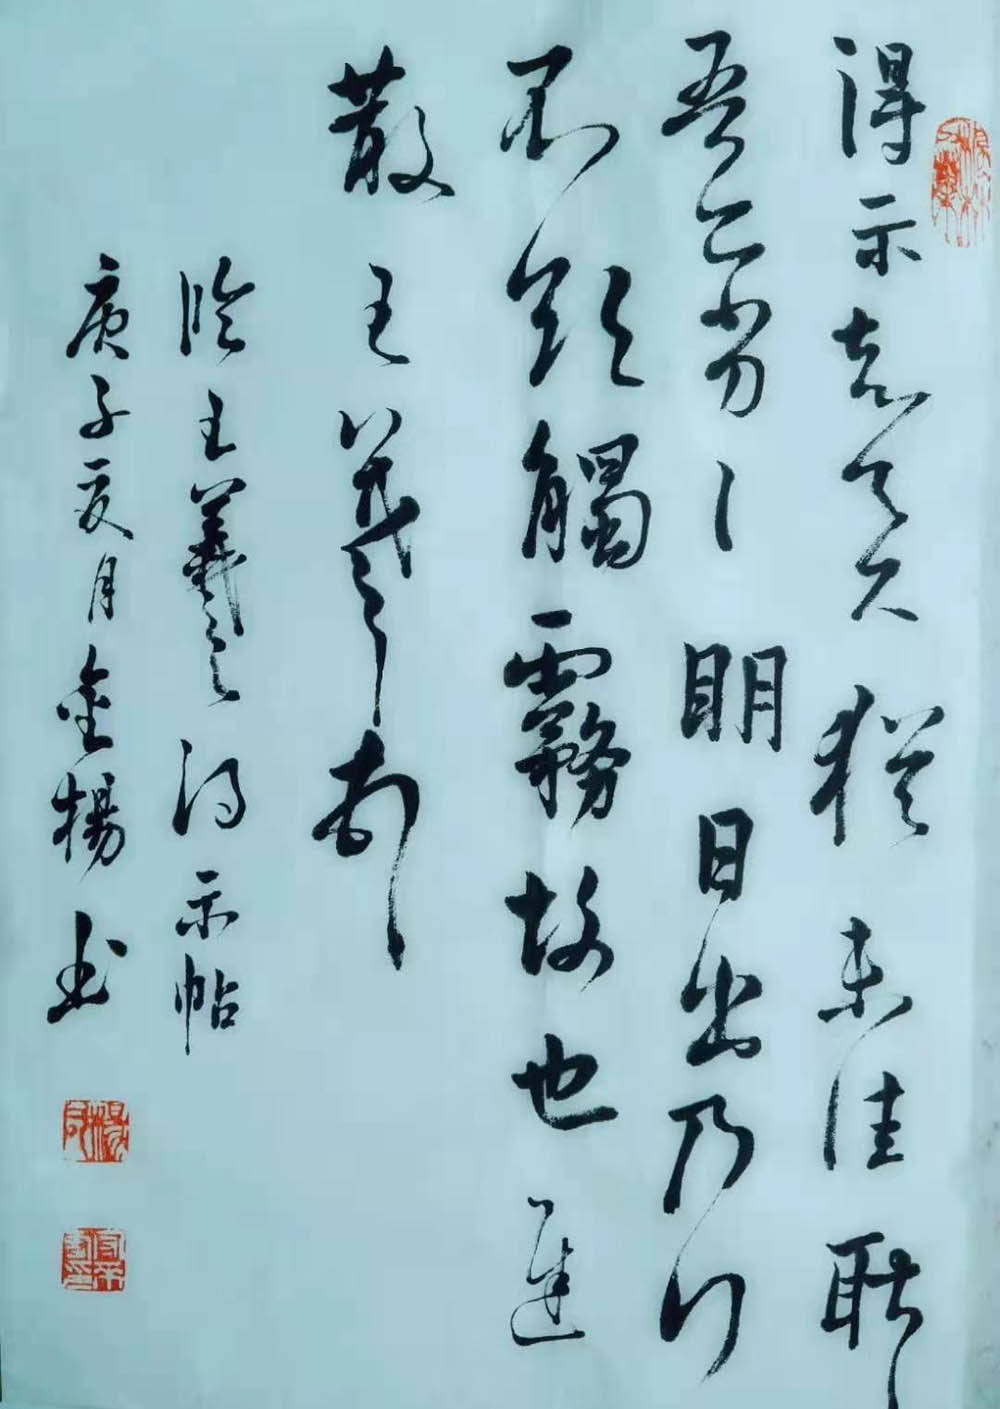 得示知足下猶未佳耿〻
吾亦劣〻眀日出乃行
不欲觸霧故也遲
散王羲之頓首
臨王羲之得示帖
庚子亥月金楊書